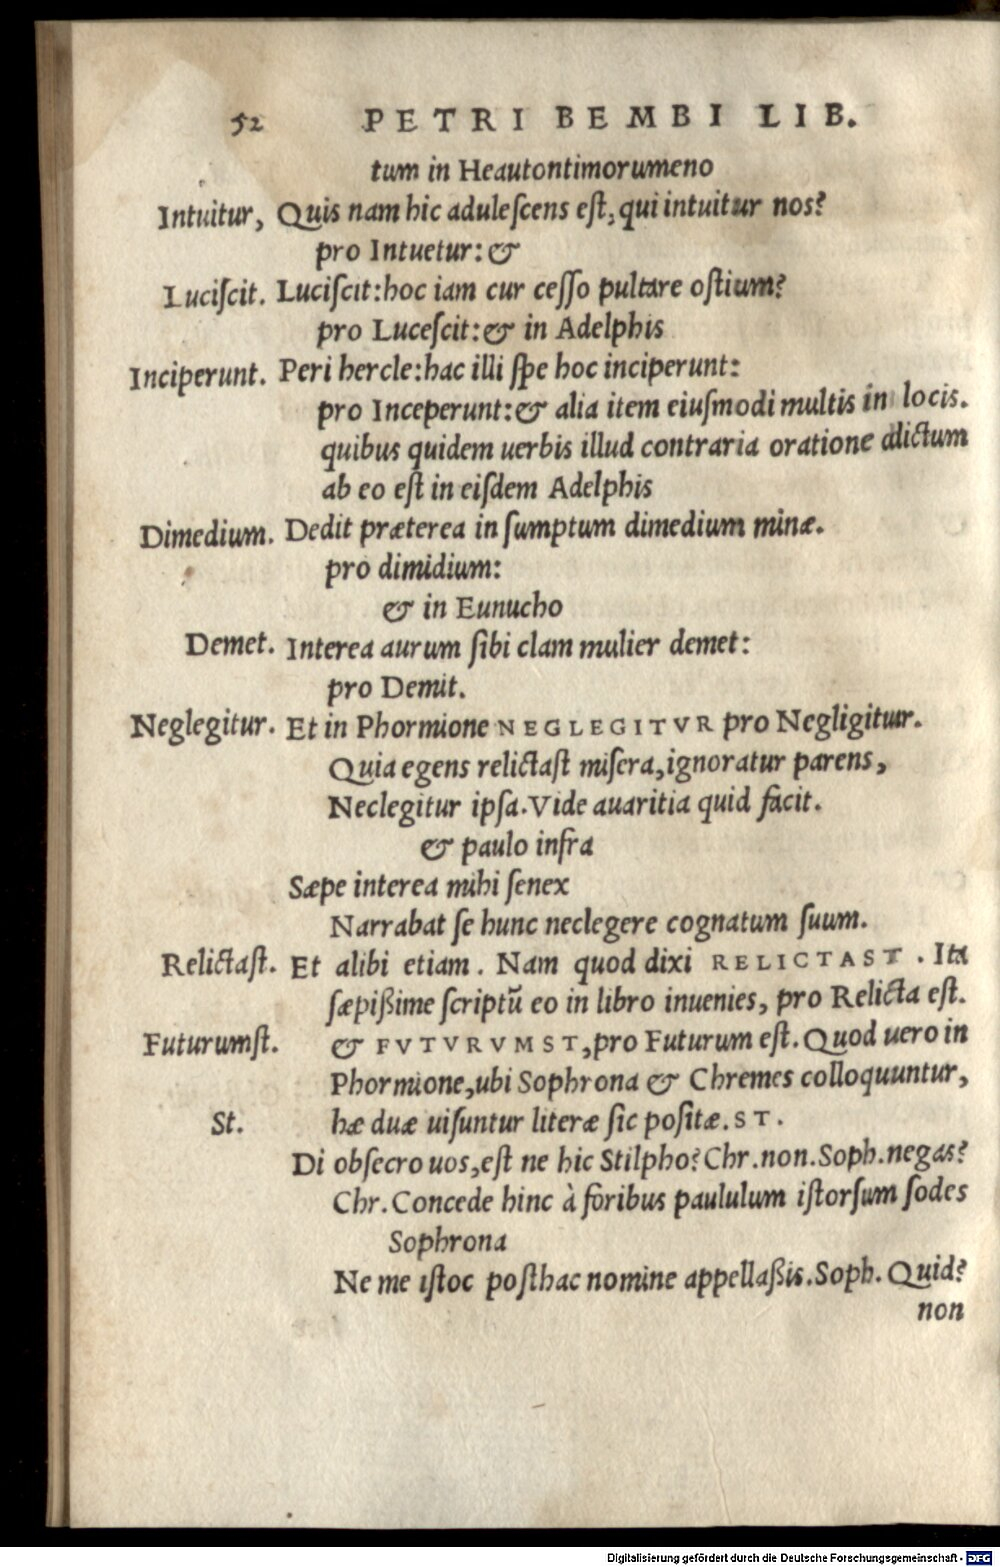 52 PETRI BEMBI LIB.
tum in Heautontimorumeno
Intuitur, Quis nam hic aduleſcens eſt, qui intuitur nos?
pro Intuetur: &
Luciſcit. Luciſcit: hoc iam cur ceſſo pultare oſtium?
pro Luceſcit: & in Adelphis
Inciperunt. Peri hercle: hac illi ſpe hoc inciperunt:
pro Inceperunt: & alia item eiuſmodi multis in locis.
quibus quidem uerbis illud contraria oratione dictum
ab eo eſt in eiſdem Adelphis
Dimedium. Dedit præterea in ſumptum dimedium minæ.
pro dimidium:
& in Eunucho
Demet. Interea aurum ſibi clam mulier demet:
pro Demit.
Neglegitur. Et in Phormione NEGLEGITVR pro Negligitur.
Quia egens relictaſt miſera, ignoratur parens,
Neclegitur ipſa. Vide auaritia quid facit.
& paulo infra
Sæpe interea mihi ſenex
Narrabat ſe hunc neclegere cognatum ſuum.
Relictaſt. Et alibi etiam. Nam quod dixi RELICTAST. Ita
ſæpißime ſcriptũ eo in libro inuenies, pro Relicta eſt.
Futurumſt. & FVTVRVMST, pro Futurum eſt. Quod uero in
Phormione, ubi Sophrona & Chremes colloquuntur,
St. hæ duæ uiſuntur literæ ſic poſitæ. ST.
Di obſecro uos, eſt ne hic Stilpho? Chr. non. Soph. negas?
Chr. Concede hinc à foribus paululum iſtorſum ſodes
Sophrona
Ne me iſtoc poſthac nomine appellaßis. Soph. Quid?
non
Digitalisierung gefördert durch die Deutsche Forschungsgemeinschaft - DFG